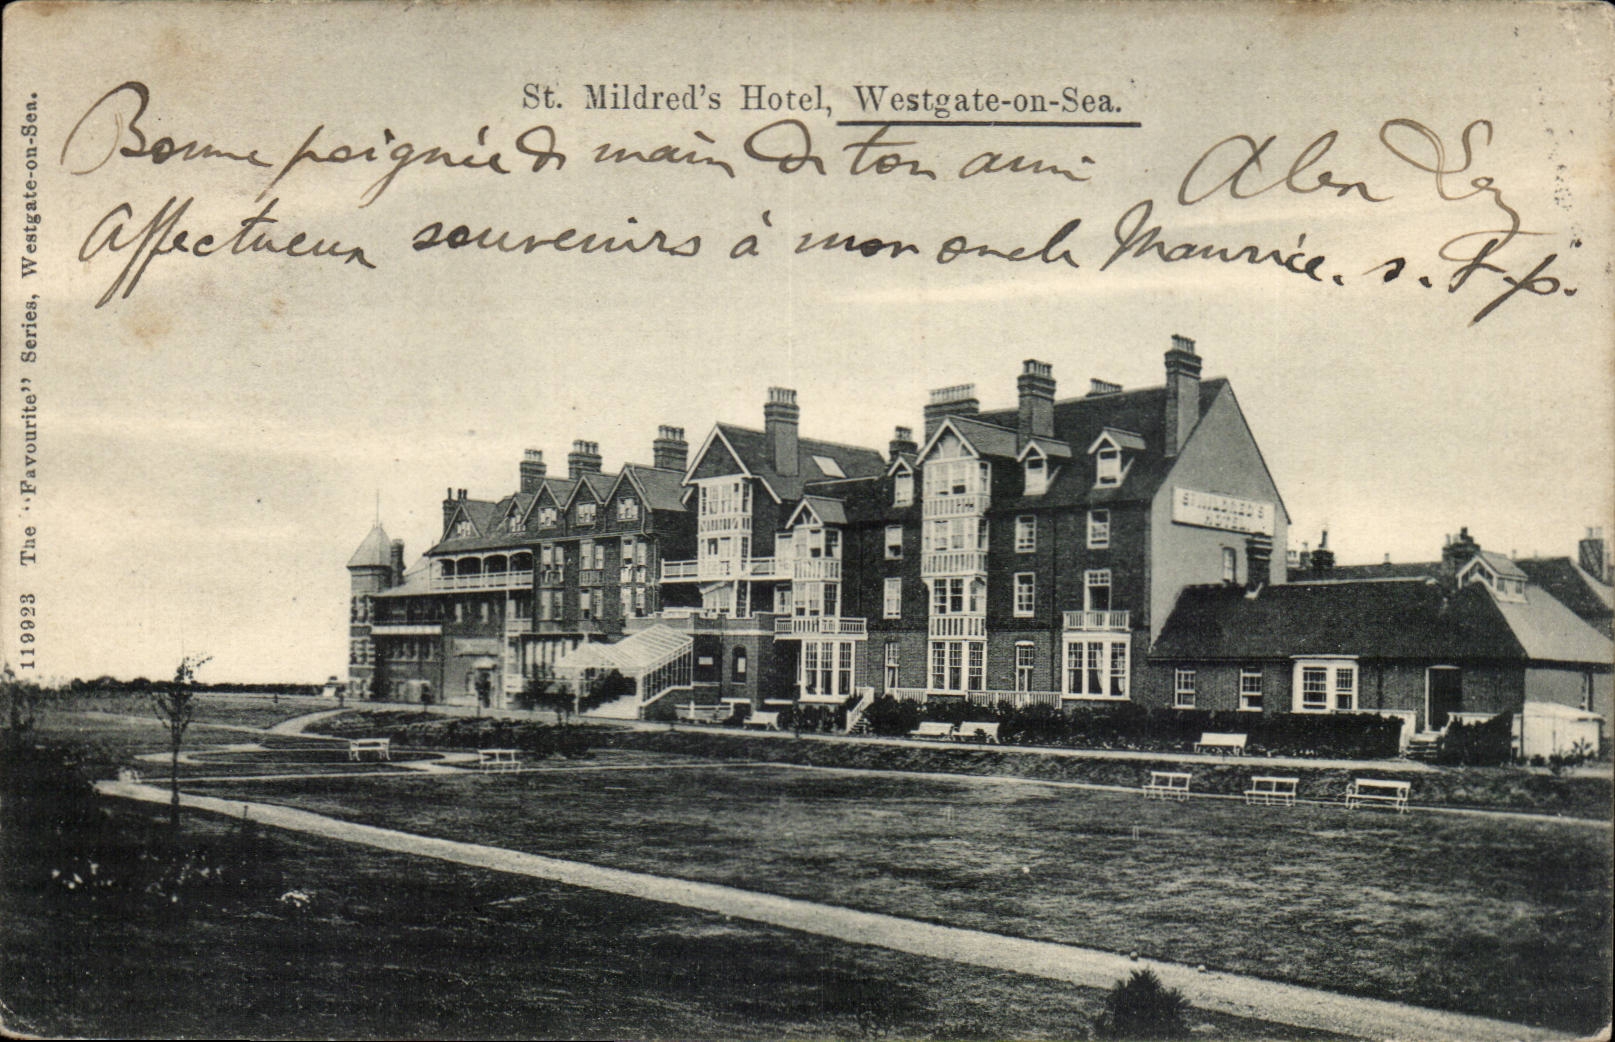 St. Mildred's Hotel, Westgate-on-Sea.
Bonne poignée de main de ton ami Alex
Affectueux souvenirs à mon oncle Maurice. s. t. p.
ST MILDRED'S
HOTEL
119923 The "Favourite" Series, Westgate-on-Sea.